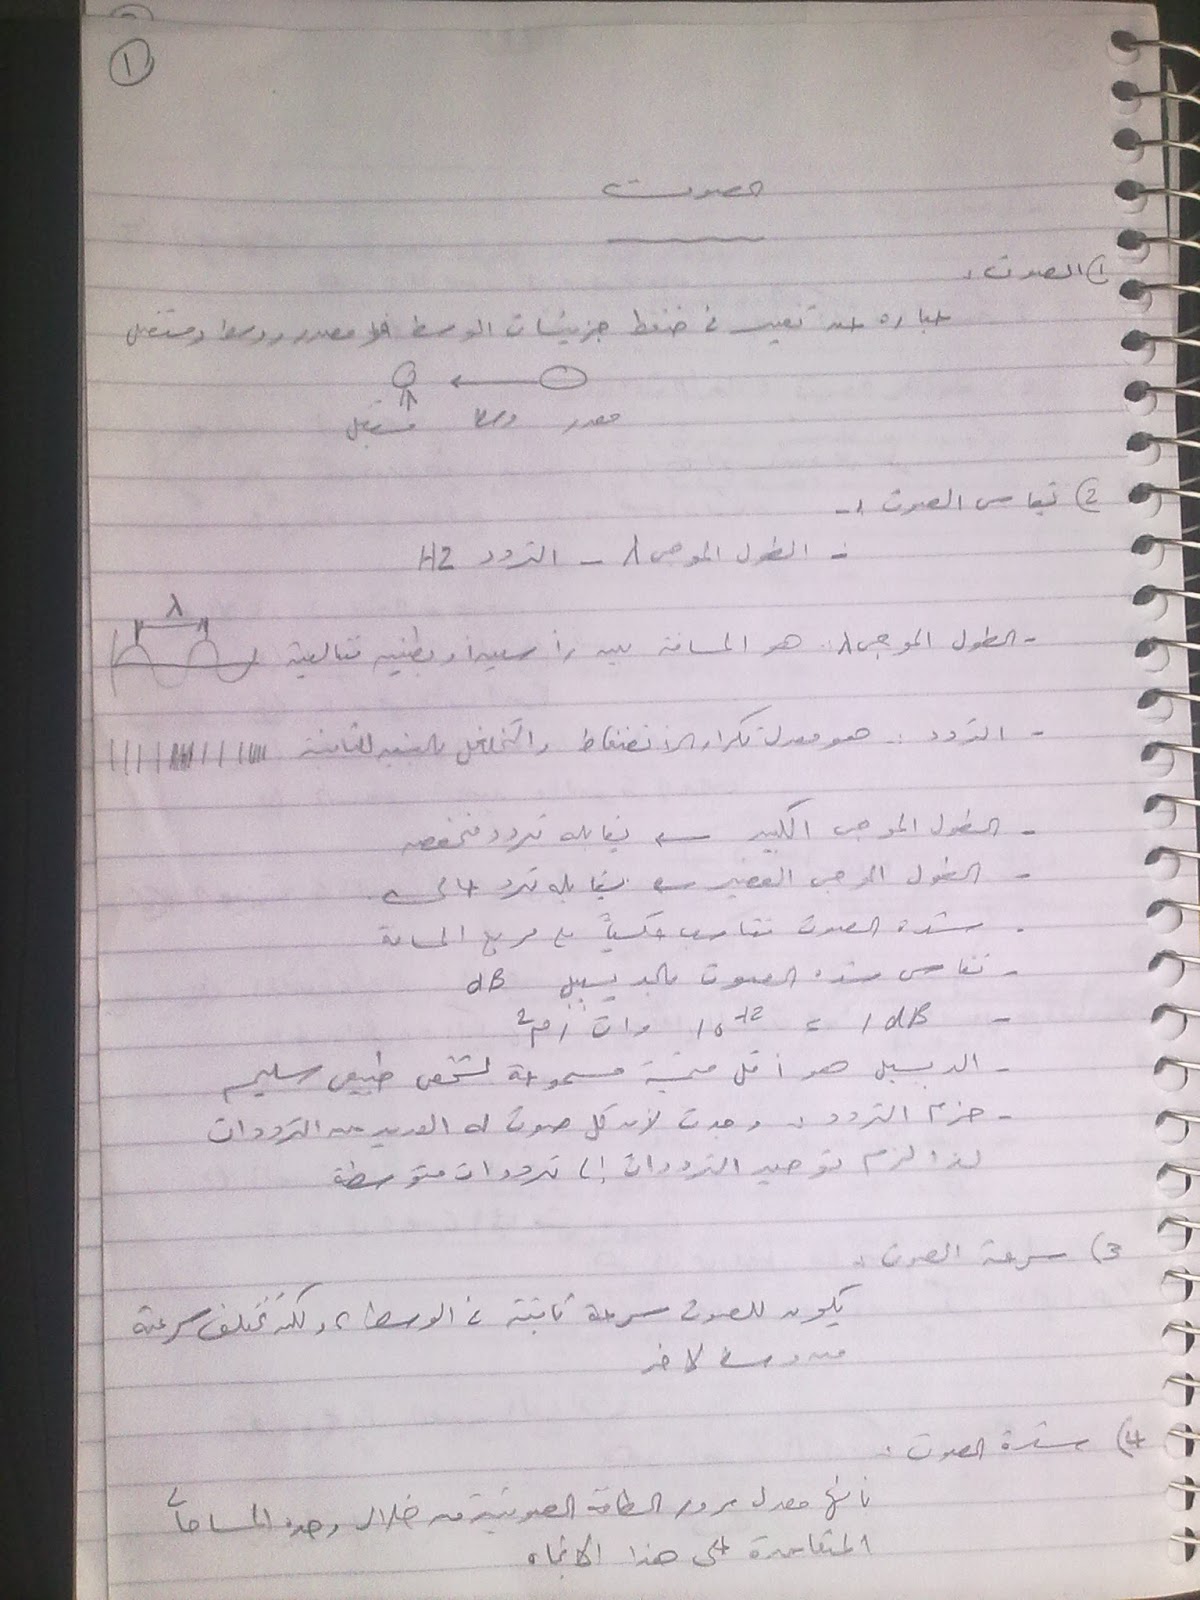 ١
الصوت
1) الصوت :
عباره عن تغير فى ضغط جزيئات الوسط مصدر ووسط ومستقبل
مصدر وسط مستقبل
2) تقاس الصوت :-
- الطول الموجى λ - التردد HZ
λ
- الطول الموجى λ : هو المسافة بين رأسين او بطنين متتالية
- التردد : هو معدل تكرار الأنضغاط والتخلخل بالنسبه للثانية
- الطول الموجى الكبير ← يقابله تردد منخفض
- الطول الموجى القصير ← يقابله تردد عالى
- شده الصوت تتناسب عكسياً مع مربع المسافة
- تقاس شده الصوت بالديسيبل dB
- 1 dB = 10⁻¹² وات / م²
- الديسبل هو أقل قيمة مسموعة لشخص طبيعى سليم
- حزم التردد : وجدت لأن كل صوت له العديد من الترددات
لذا لزم توحيد الترددات إلى ترددات متوسطة
3) سرعة الصوت :
يكون للصوت سرعة ثابتة فى الوسط ، ولكن تختلف سرعتة
من وسط لاخر
4) شدة الصوت :
معدل مرور الطاقة الصوتية من خلال وحده المساحات
المتعامدة على هذا الاتجاه